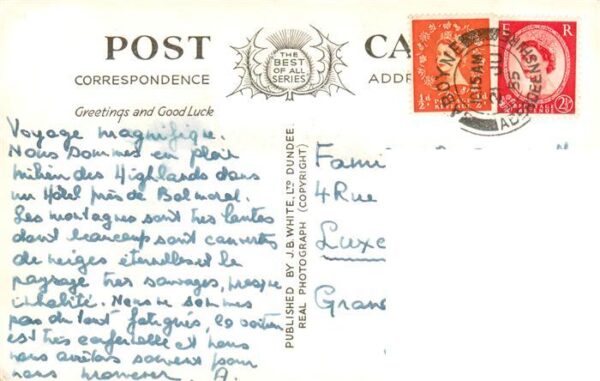 POST CA
CORRESPONDENCE ADDR
THE
BEST
OF ALL
SERIES
Greetings and Good Luck
E R
ABOYNE
ABERDEENSHIRE
10 15 AM
JU
55
½D POSTAGE REVENUE ½D
2½D
Voyage magnifique.
Nous sommes en plein
milieu des Highlands dans
un Hôtel près de Balmoral.
Les montagnes sont tres hautes
dont beaucoup sont couverts
de neiges éternelles et le
paysage tres sauvages, presque
inhabité. Nous ne sommes
pas du tout fatigués, la voiture
est très confortable et nous
nous arrêtons souvent pour
nous promener. A.
PUBLISHED BY J.B.WHITE, LTD DUNDEE.
REAL PHOTOGRAPH (COPYRIGHT)
Fami
4 Rue
Luxe
Gran